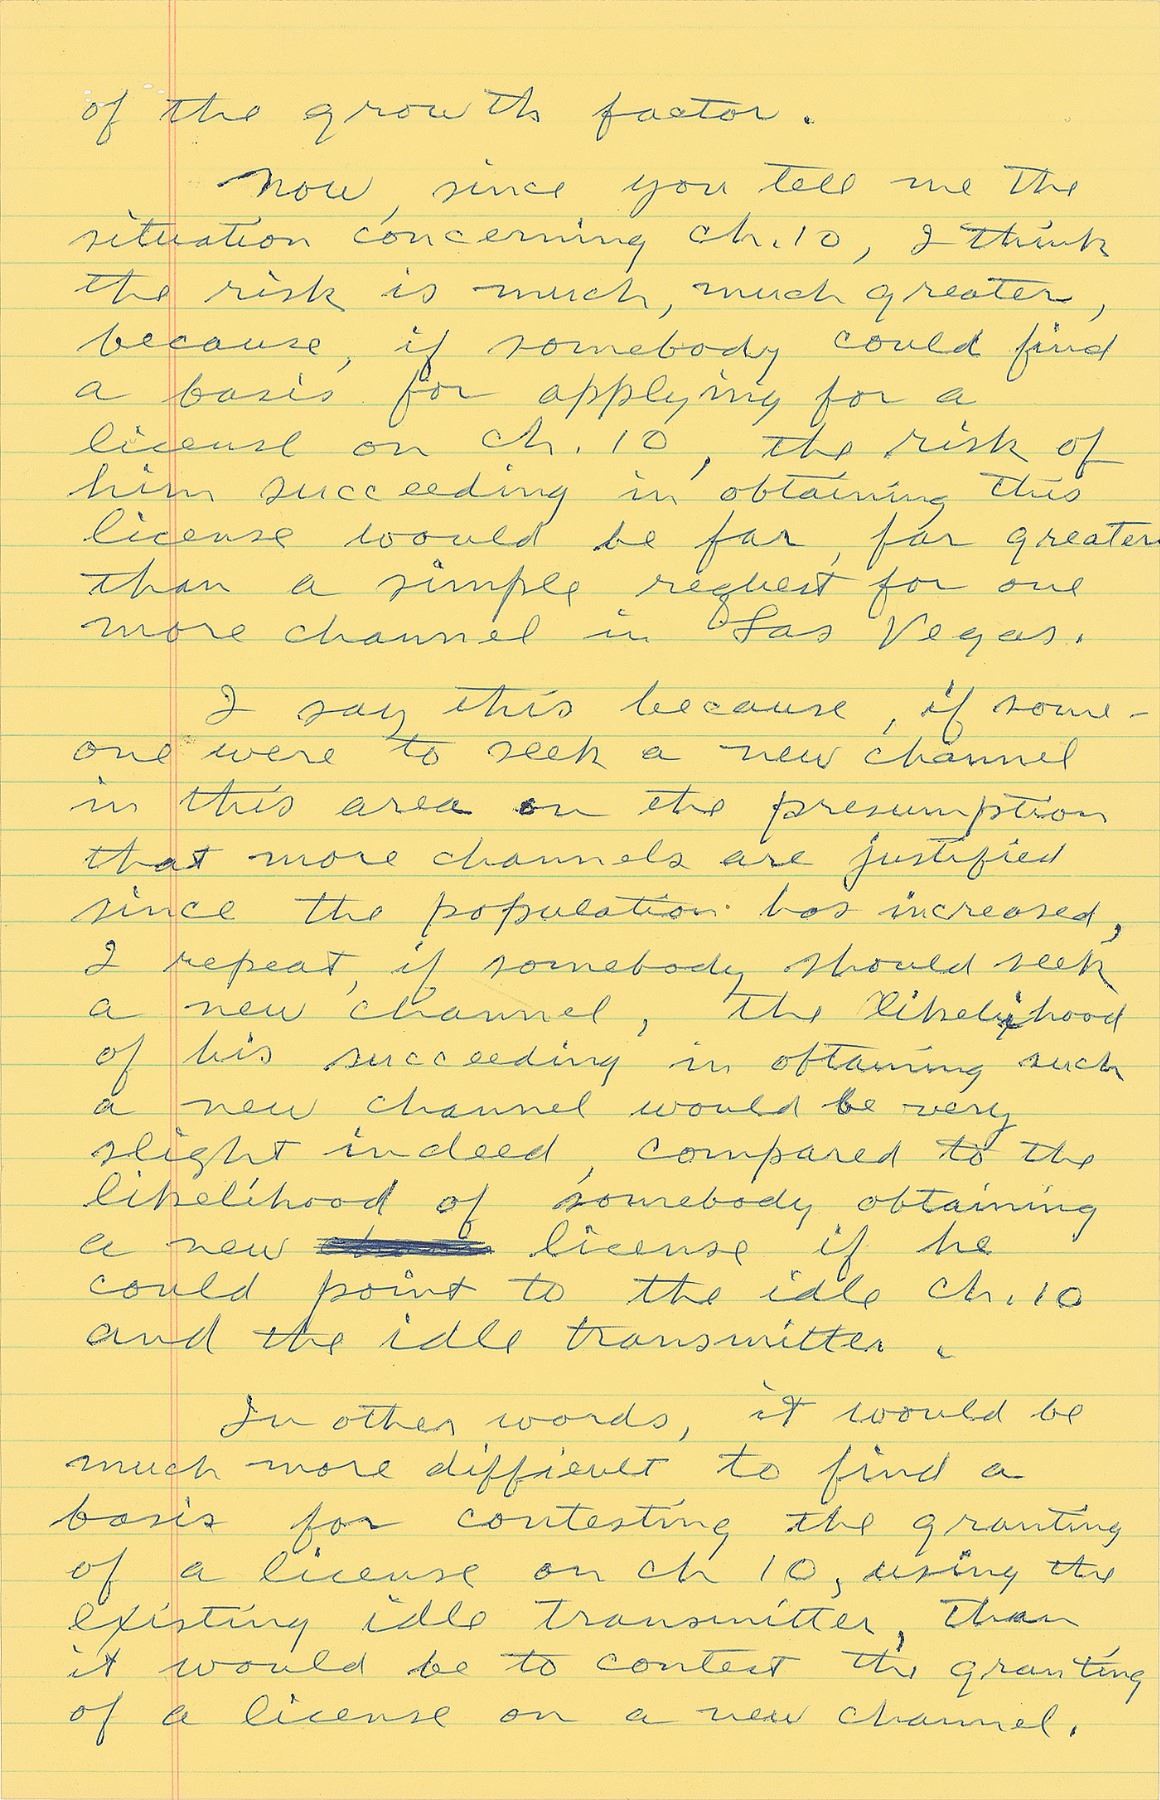 of the growth factor.
Now, since you tell me the
situation concerning ch. 10, I think
the risk is much, much greater,
because, if somebody could find
a basis for applying for a
license on ch. 10, the risk of
him succeeding in obtaining this
license would be far, far greater
than a simple request for one
more channel in Las Vegas.
I say this because, if some-
one were to seek a new channel
in this area on the presumption
that more channels are justified
since the population has increased,
I repeat, if somebody should seek
a new channel, the likelihood
of his succeeding in obtaining such
a new channel would be very
slight indeed, compared to the
likelihood of somebody obtaining
a new license if he
could point to the idle ch. 10
and the idle transmitter.
In other words, it would be
much more difficult to find a
basis for contesting the granting
of a license on ch 10, using the
existing idle transmitter, than
it would be to contest the granting
of a license on a new channel.